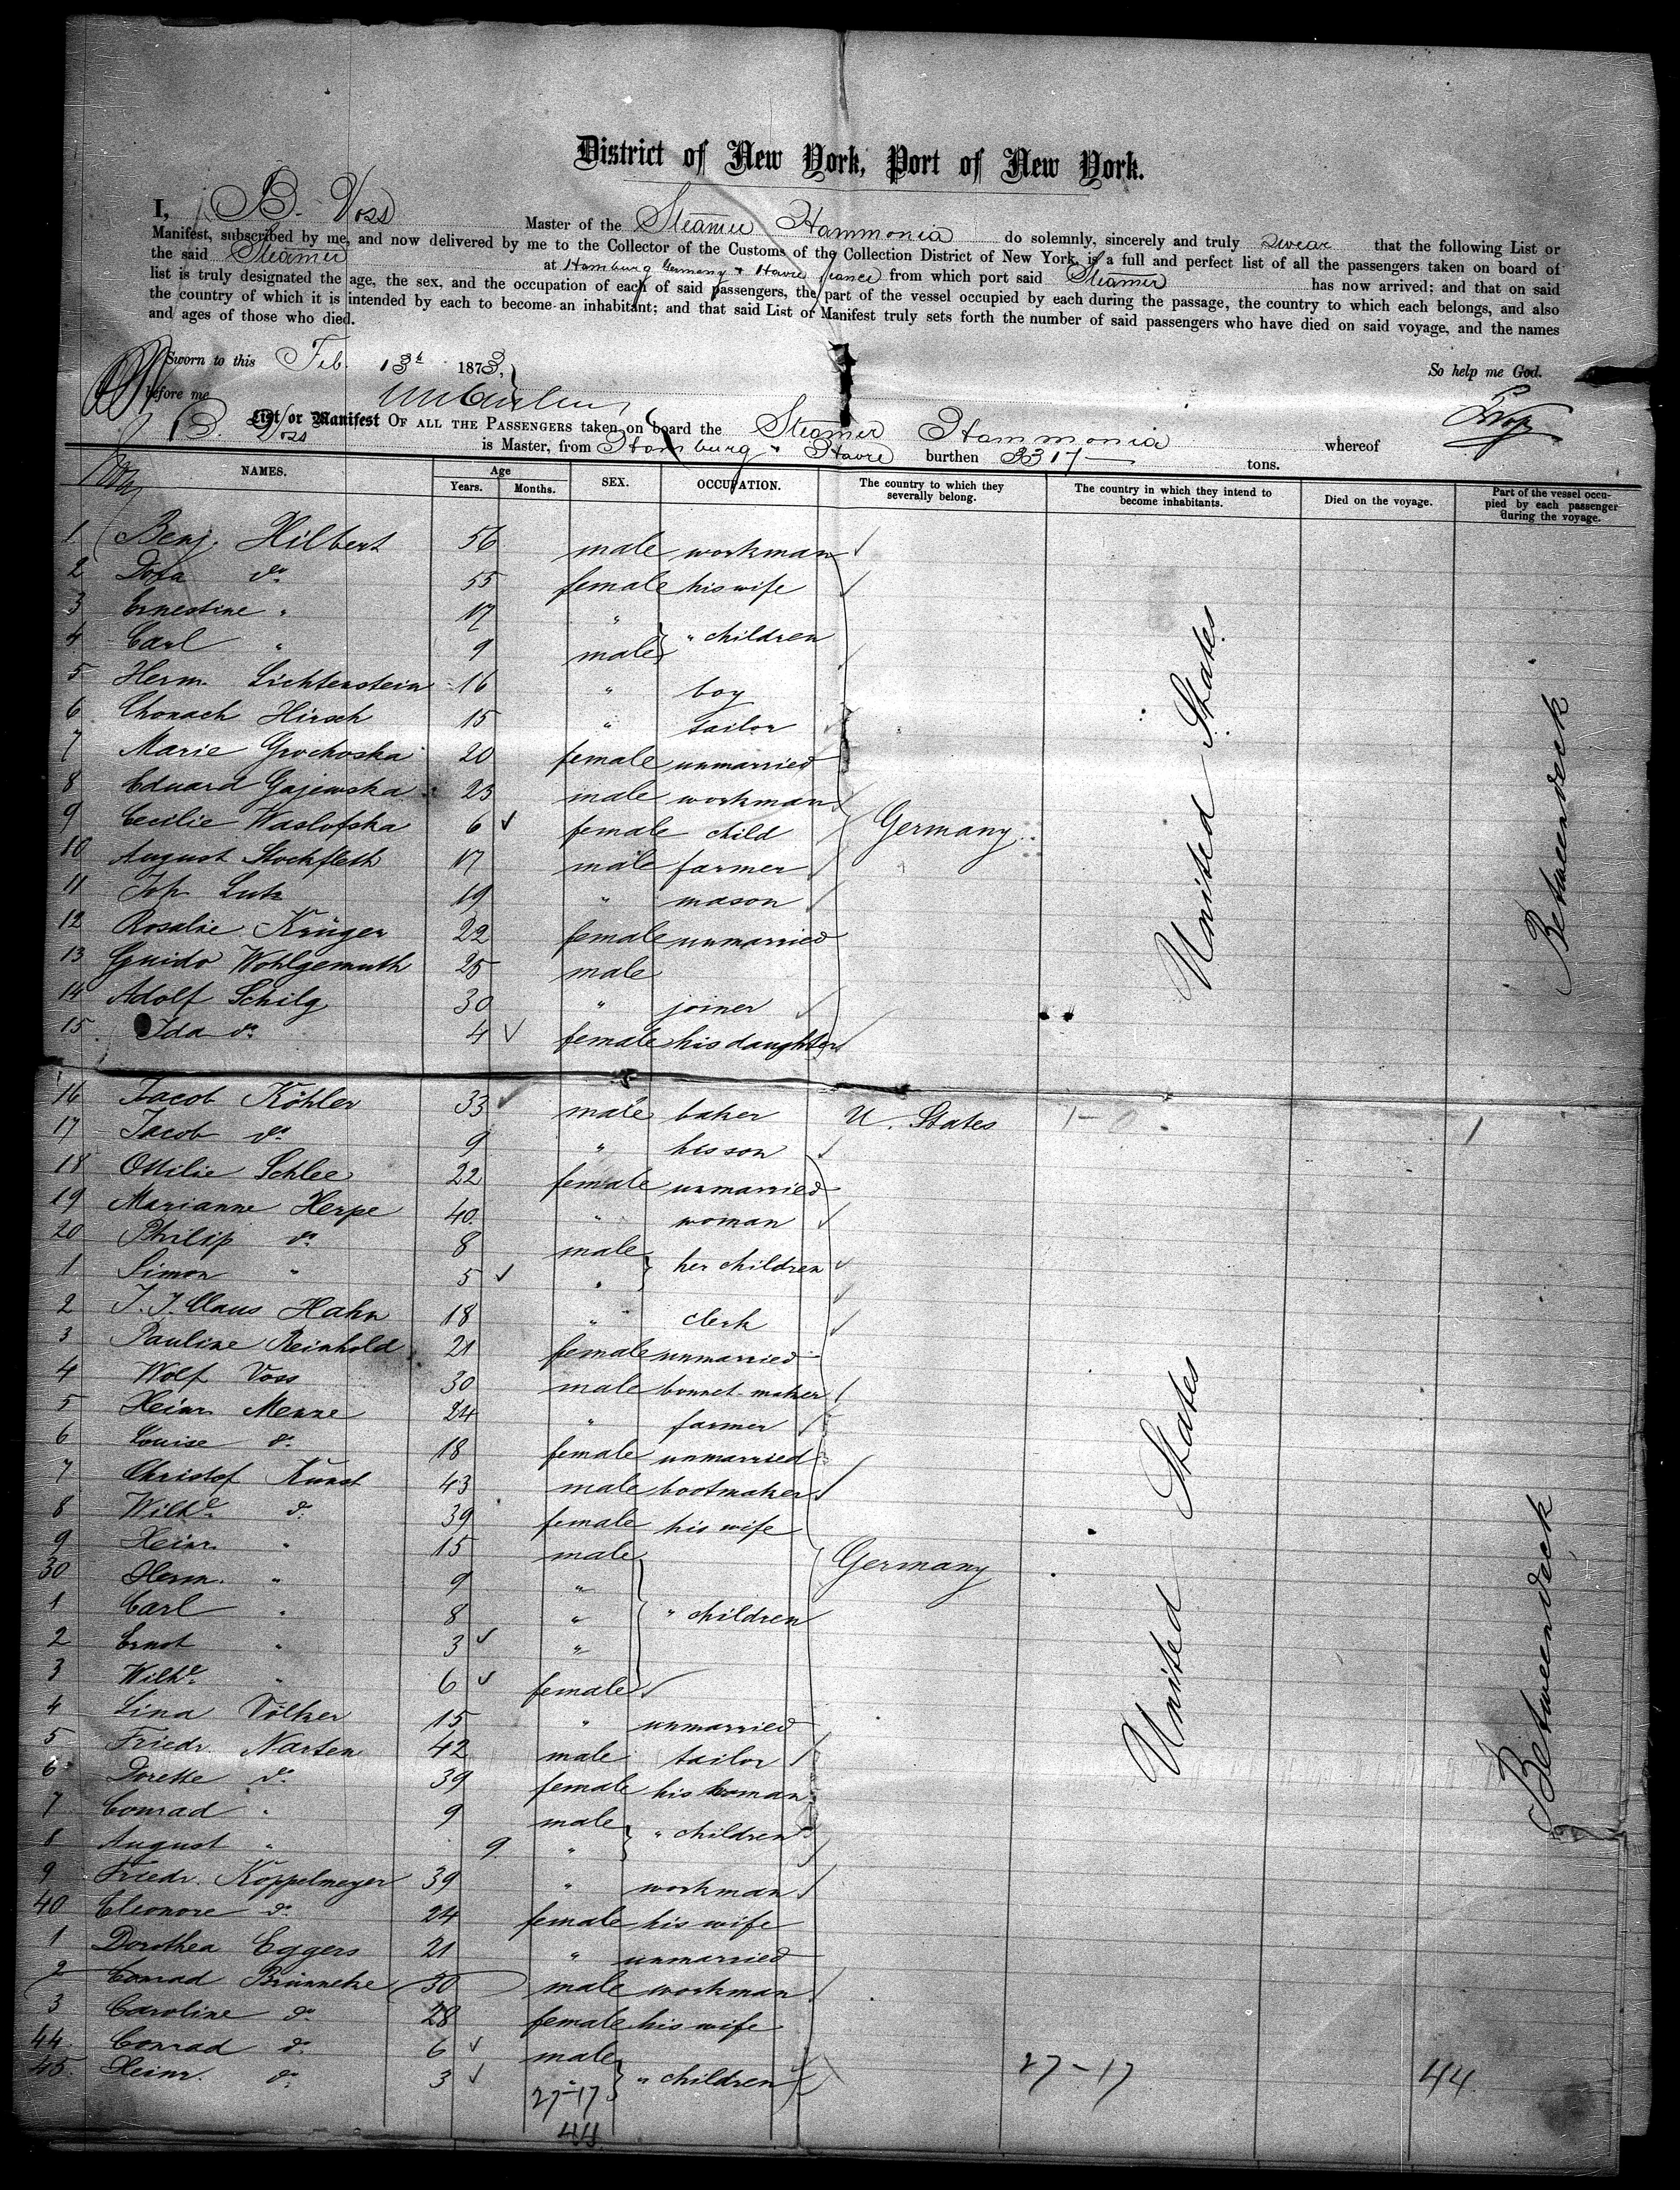 District of New York, Port of New York.
I, B. Voss Master of the Steamer Hammonia do solemnly, sincerely and truly swear that the following List or
Manifest, subscribed by me, and now delivered by me to the Collector of the Customs of the Collection District of New York, is a full and perfect list of all the passengers taken on board of
the said Steamer at Hamburg Germany & Havre france from which port said Steamer has now arrived; and that on said
list is truly designated the age, the sex, and the occupation of each of said passengers, the part of the vessel occupied by each during the passage, the country to which each belongs, and also
the country of which it is intended by each to become an inhabitant; and that said List or Manifest truly sets forth the number of said passengers who have died on said voyage, and the names
and ages of those who died.
Sworn to this Feb. 13th 1873, So help me God.
before me
List or Manifest OF ALL THE PASSENGERS taken on board the Steamer Hammonia whereof
B. Voss is Master, from Hamburg & Havre burthen 3317 — tons.
NAMES. Age Years. Months. SEX. OCCUPATION. The country to which they severally belong. The country in which they intend to become inhabitants. Died on the voyage. Part of the vessel occu-pied by each passenger during the voyage.
1 Benj. Hilbert 56 male workman
2 Dora do 55 female his wife
3 Ernestine " 17 "
4 Carl " 9 male " children
5 Herm. Lichtenstein 16 " boy
6 Chonach Hirsch 15 " tailor
7 Marie Grochoska 20 female unmarried
8 Eduard Gajewska 23 male workman
9 Cecilie Waslofska 6 female child Germany
10 August Stockfleth 17 male farmer
11 Joh. Lutz 19 " mason
12 Rosalie Krüger 22 female unmarried
13 Guido Wohlgemuth 25 male
14 Adolf Schilg 30 " joiner
15 Ida do 4 female his daughter
United States
Betweendeck
16 Jacob Köhler 33 male baker U. States 1-0 1
17 Jacob do 9 " his son
18 Ottilie Schlee 22 female unmarried
19 Marianne Herpe 40 " woman
20 Philip do 8 male her children
1 Simon " 5 "
2 J. J. Claus Hahn 18 " clerk
3 Pauline Reinhold 21 female unmarried
4 Wolf Voss 30 male bonnet maker
5 Heinr. Menze 24 " farmer
6 Louise do 18 female unmarried
7 Christof Kunst 43 male bootmaker
8 Wilhe. do 39 female his wife
9 Heinr. " 15 male Germany
30 Herm. " 9 "
1 Carl " 8 " " children
2 Ernst " 3 "
3 Wilhe. " 6 female
4 Lina Völker 15 " unmarried
5 Friedr. Narten 42 male tailor
6 Dorette do 39 female his woman
7 Conrad " 9 male " children
8 August " 9 "
9 Friedr. Koppelmeyer 39 " workman
40 Eleonore do 24 female his wife
1 Dorothea Eggers 21 " unmarried
2 Conrad Brünneke 30 male workman
3 Caroline do 28 female his wife
44 Conrad do 6 male
45 Heinr. do 3 " " children
United States
Betweendeck
27-17 27-17 44
44